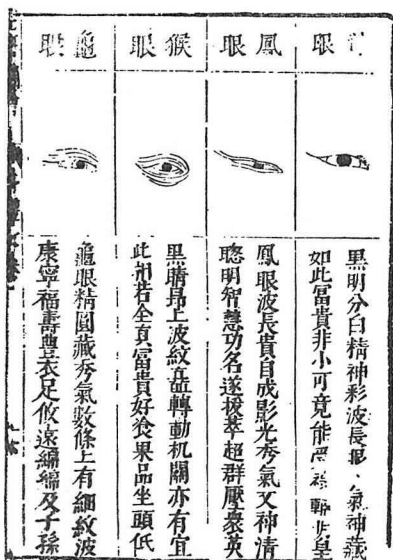 眼
黑明分白精神彩波長氣神藏
如此富貴非小可竟能輔皇
鳳眼
鳳眼波長貴自成影光秀氣又神清
聰明智慧功名遂拔萃超群壓衆英
猴眼
黑睛昂上波紋矗轉動机關亦有宜
此相若全真富貴好食果品坐頭低
龜眼
龜眼精圓藏秀氣數條上有細紋波
康寧福壽豊衣足攸遠綿綿及子孫